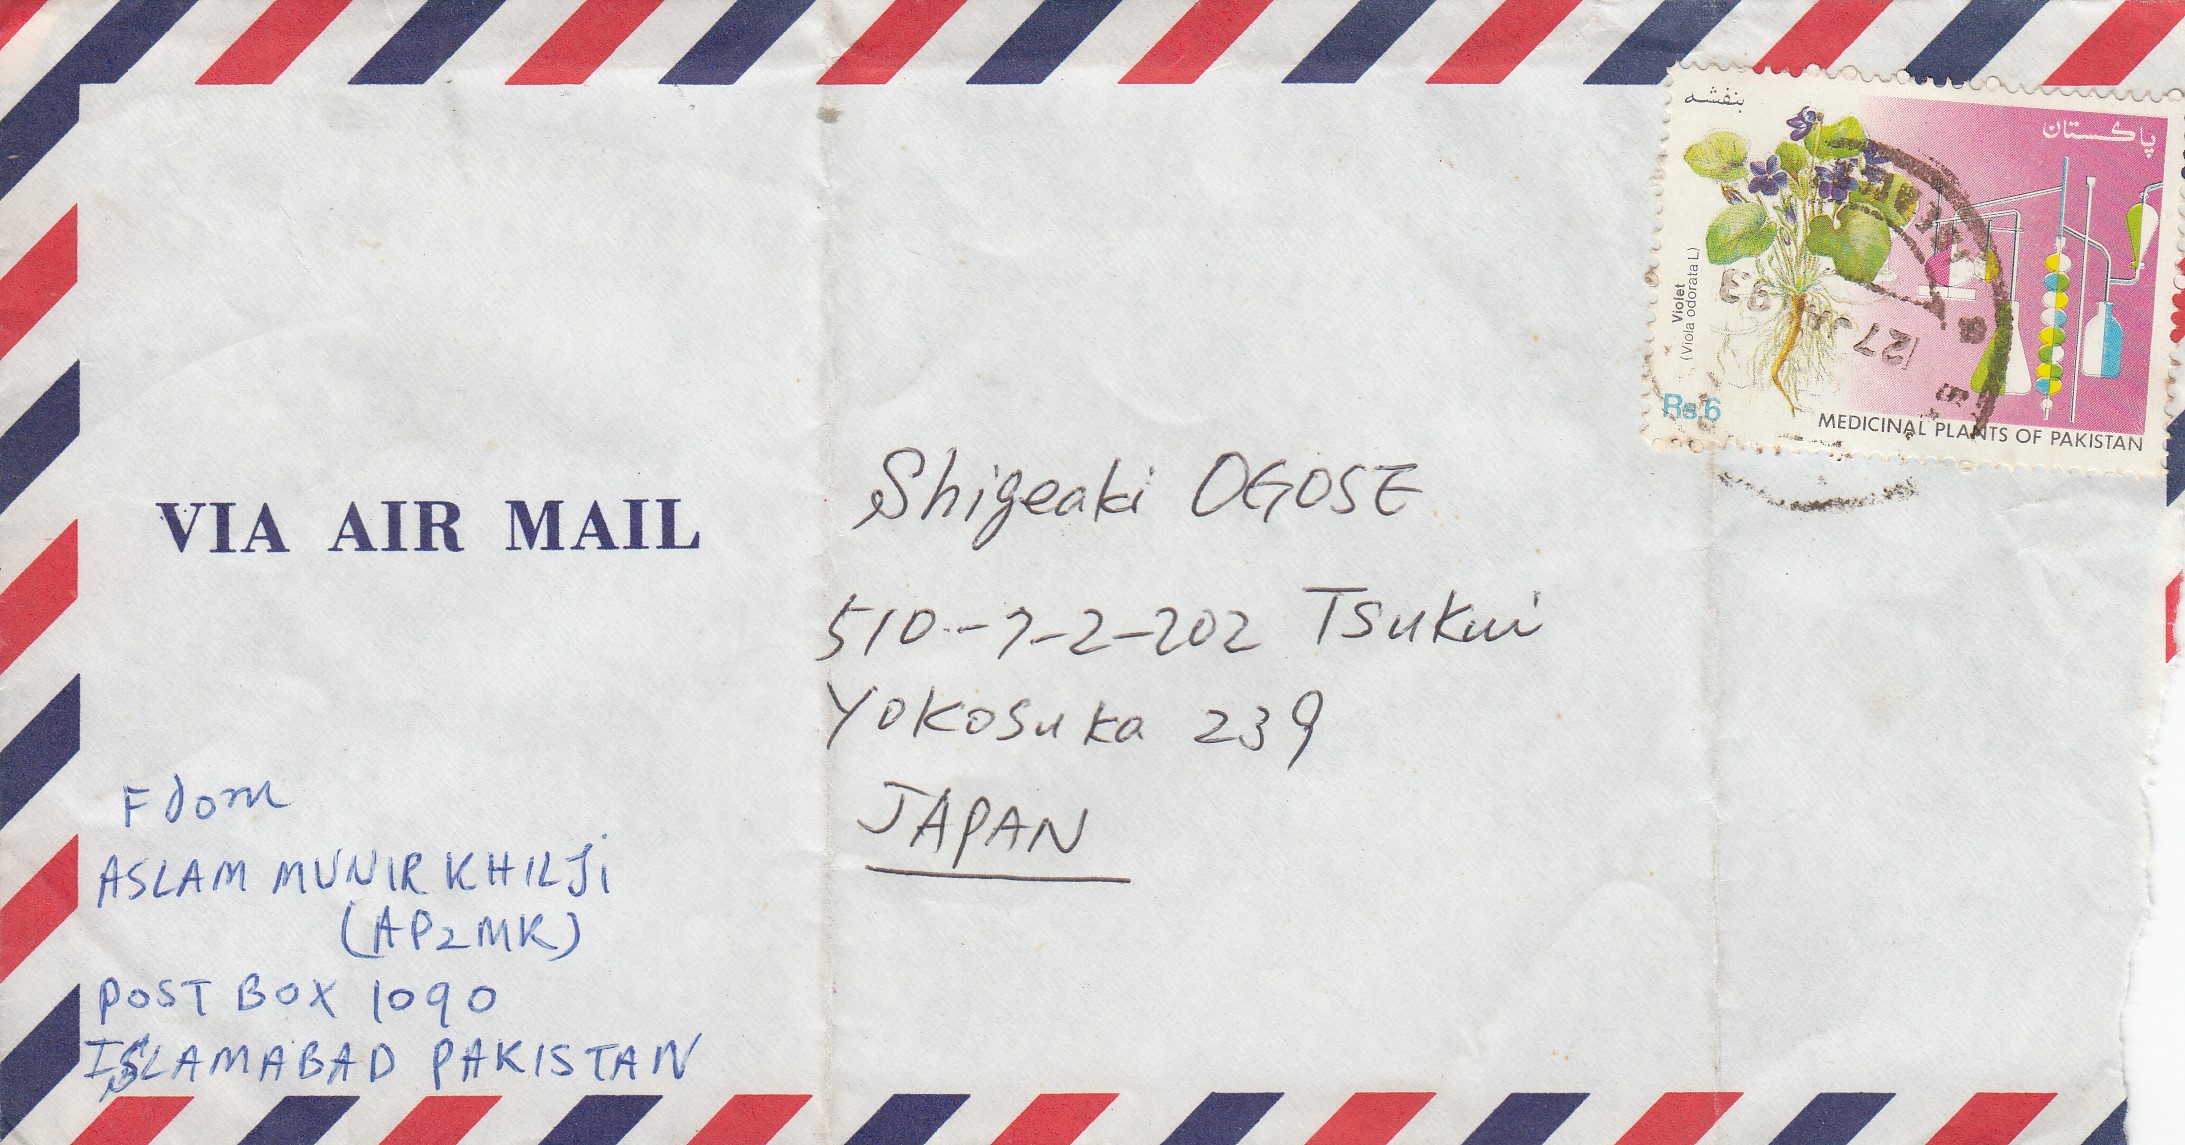 بنفشه
پاکستان
Violet
(Viola odorata L)
Rs.6
MEDICINAL PLANTS OF PAKISTAN
27 JA 93
VIA AIR MAIL
Shigeaki OGOSE
510-7-2-202 Tsukui
Yokosuka 239
JAPAN
From
ASLAM MUNIR KHILJi
(AP2MK)
POST BOX 1090
ISLAMABAD PAKISTAN